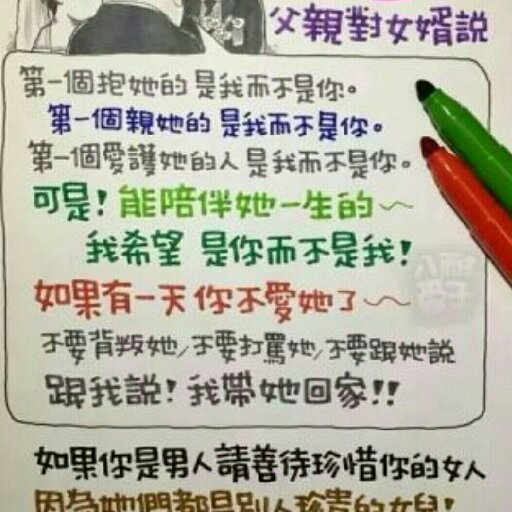 父親對女婿說
第一個抱她的 是我而不是你。
第一個親她的 是我而不是你。
第一個愛護她的人 是我而不是你。
可是! 能陪伴她一生的~
我希望 是你而不是我!
如果有一天 你不愛她了~
不要背叛她/不要打罵她/不要跟她說
跟我說! 我帶她回家!!
如果你是男人請善待珍惜你的女人
因為她們都是別人珍貴的女兒!